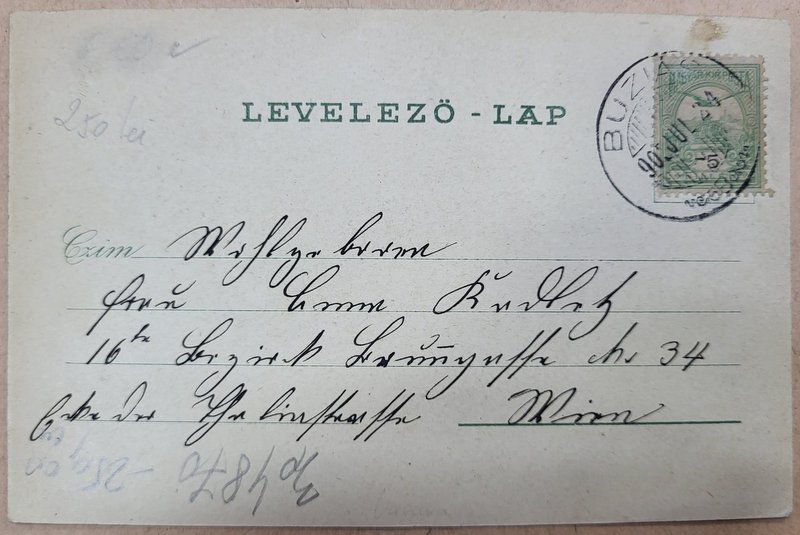 250 lei
LEVELEZŐ - LAP
BUZIÁS
MAGYAR KIR. POSTA
5
Czim
Wohlgeboren
Frau Anna Kadletz
16te Bezirk Brunngasse No 34
Ecke der Thaliastrasse Wien